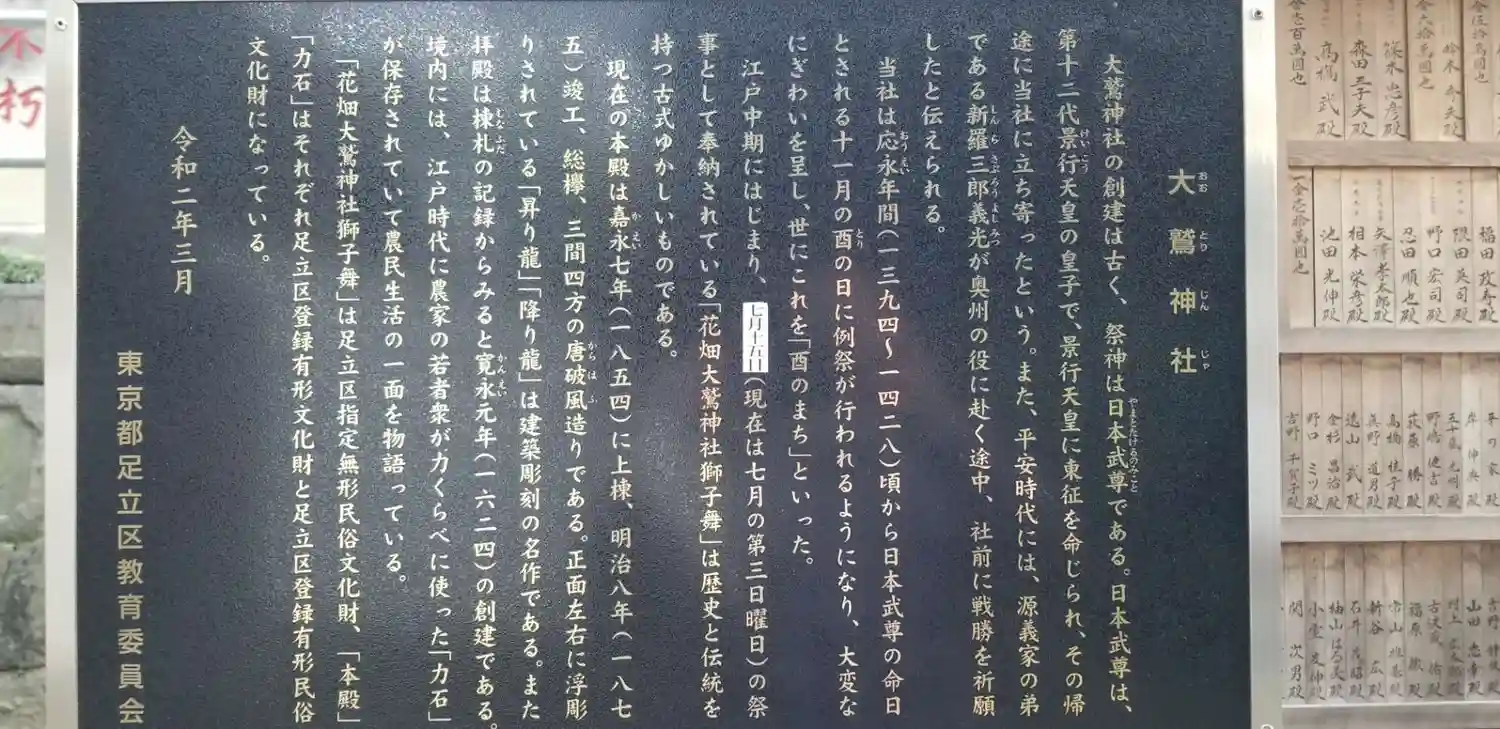 大鷲神社
おお とり じん じゃ
大鷲神社の創建は古く、祭神は日本武尊である。日本武尊は、
やまとたけるのみこと
第十二代景行天皇の皇子で、景行天皇に東征を命じられ、その帰
けいこう
途に当社に立ち寄ったという。また、平安時代には、源義家の弟
である新羅三郎義光が奥州の役に赴く途中、社前に戦勝を祈願
しんら さぶろうよしみつ
したと伝えられる。
当社は応永年間(一三九四～一四二八)頃から日本武尊の命日
おうえい
とされる十一月の酉の日に例祭が行われるようになり、大変な
とり
にぎわいを呈し、世にこれを「酉のまち」といった。
江戸中期にはじまり、七月十五日(現在は七月の第三日曜日)の祭
事として奉納されている「花畑大鷲神社獅子舞」は歴史と伝統を
持つ古式ゆかしいものである。
現在の本殿は嘉永七年(一八五四)に上棟、明治八年(一八七
かえい
五)竣工、総欅、三間四方の唐破風造りである。正面左右に浮彫
からはふ
りされている「昇り龍」「降り龍」は建築彫刻の名作である。また
拝殿は棟札の記録からみると寛永元年(一六二四)の創建である。
むなふだ かんえい
境内には、江戸時代に農家の若者衆が力くらべに使った「力石」
が保存されていて農民生活の一面を物語っている。
「花畑大鷲神社獅子舞」は足立区指定無形民俗文化財、「本殿」
「力石」はそれぞれ足立区登録有形文化財と足立区登録有形民俗
文化財になっている。
令和二年三月
東京都足立区教育委員会
不朽
高橋 武殿
森田 三子夫殿
篠木 忠彦殿
福田 政寿殿
隈田 英司殿
野口 宏司殿
忍田 順也殿
矢澤 孝太郎殿
相本 栄彦殿
池田 光伸殿
荻原 勝殿
高橋 桂子殿
真野 道男殿
遠山 武殿
金杉 昌治殿
野口 ミツ殿
吉野 千賀子殿
山田 忠幸殿
福原 徹殿
新谷 広殿
関 次男殿